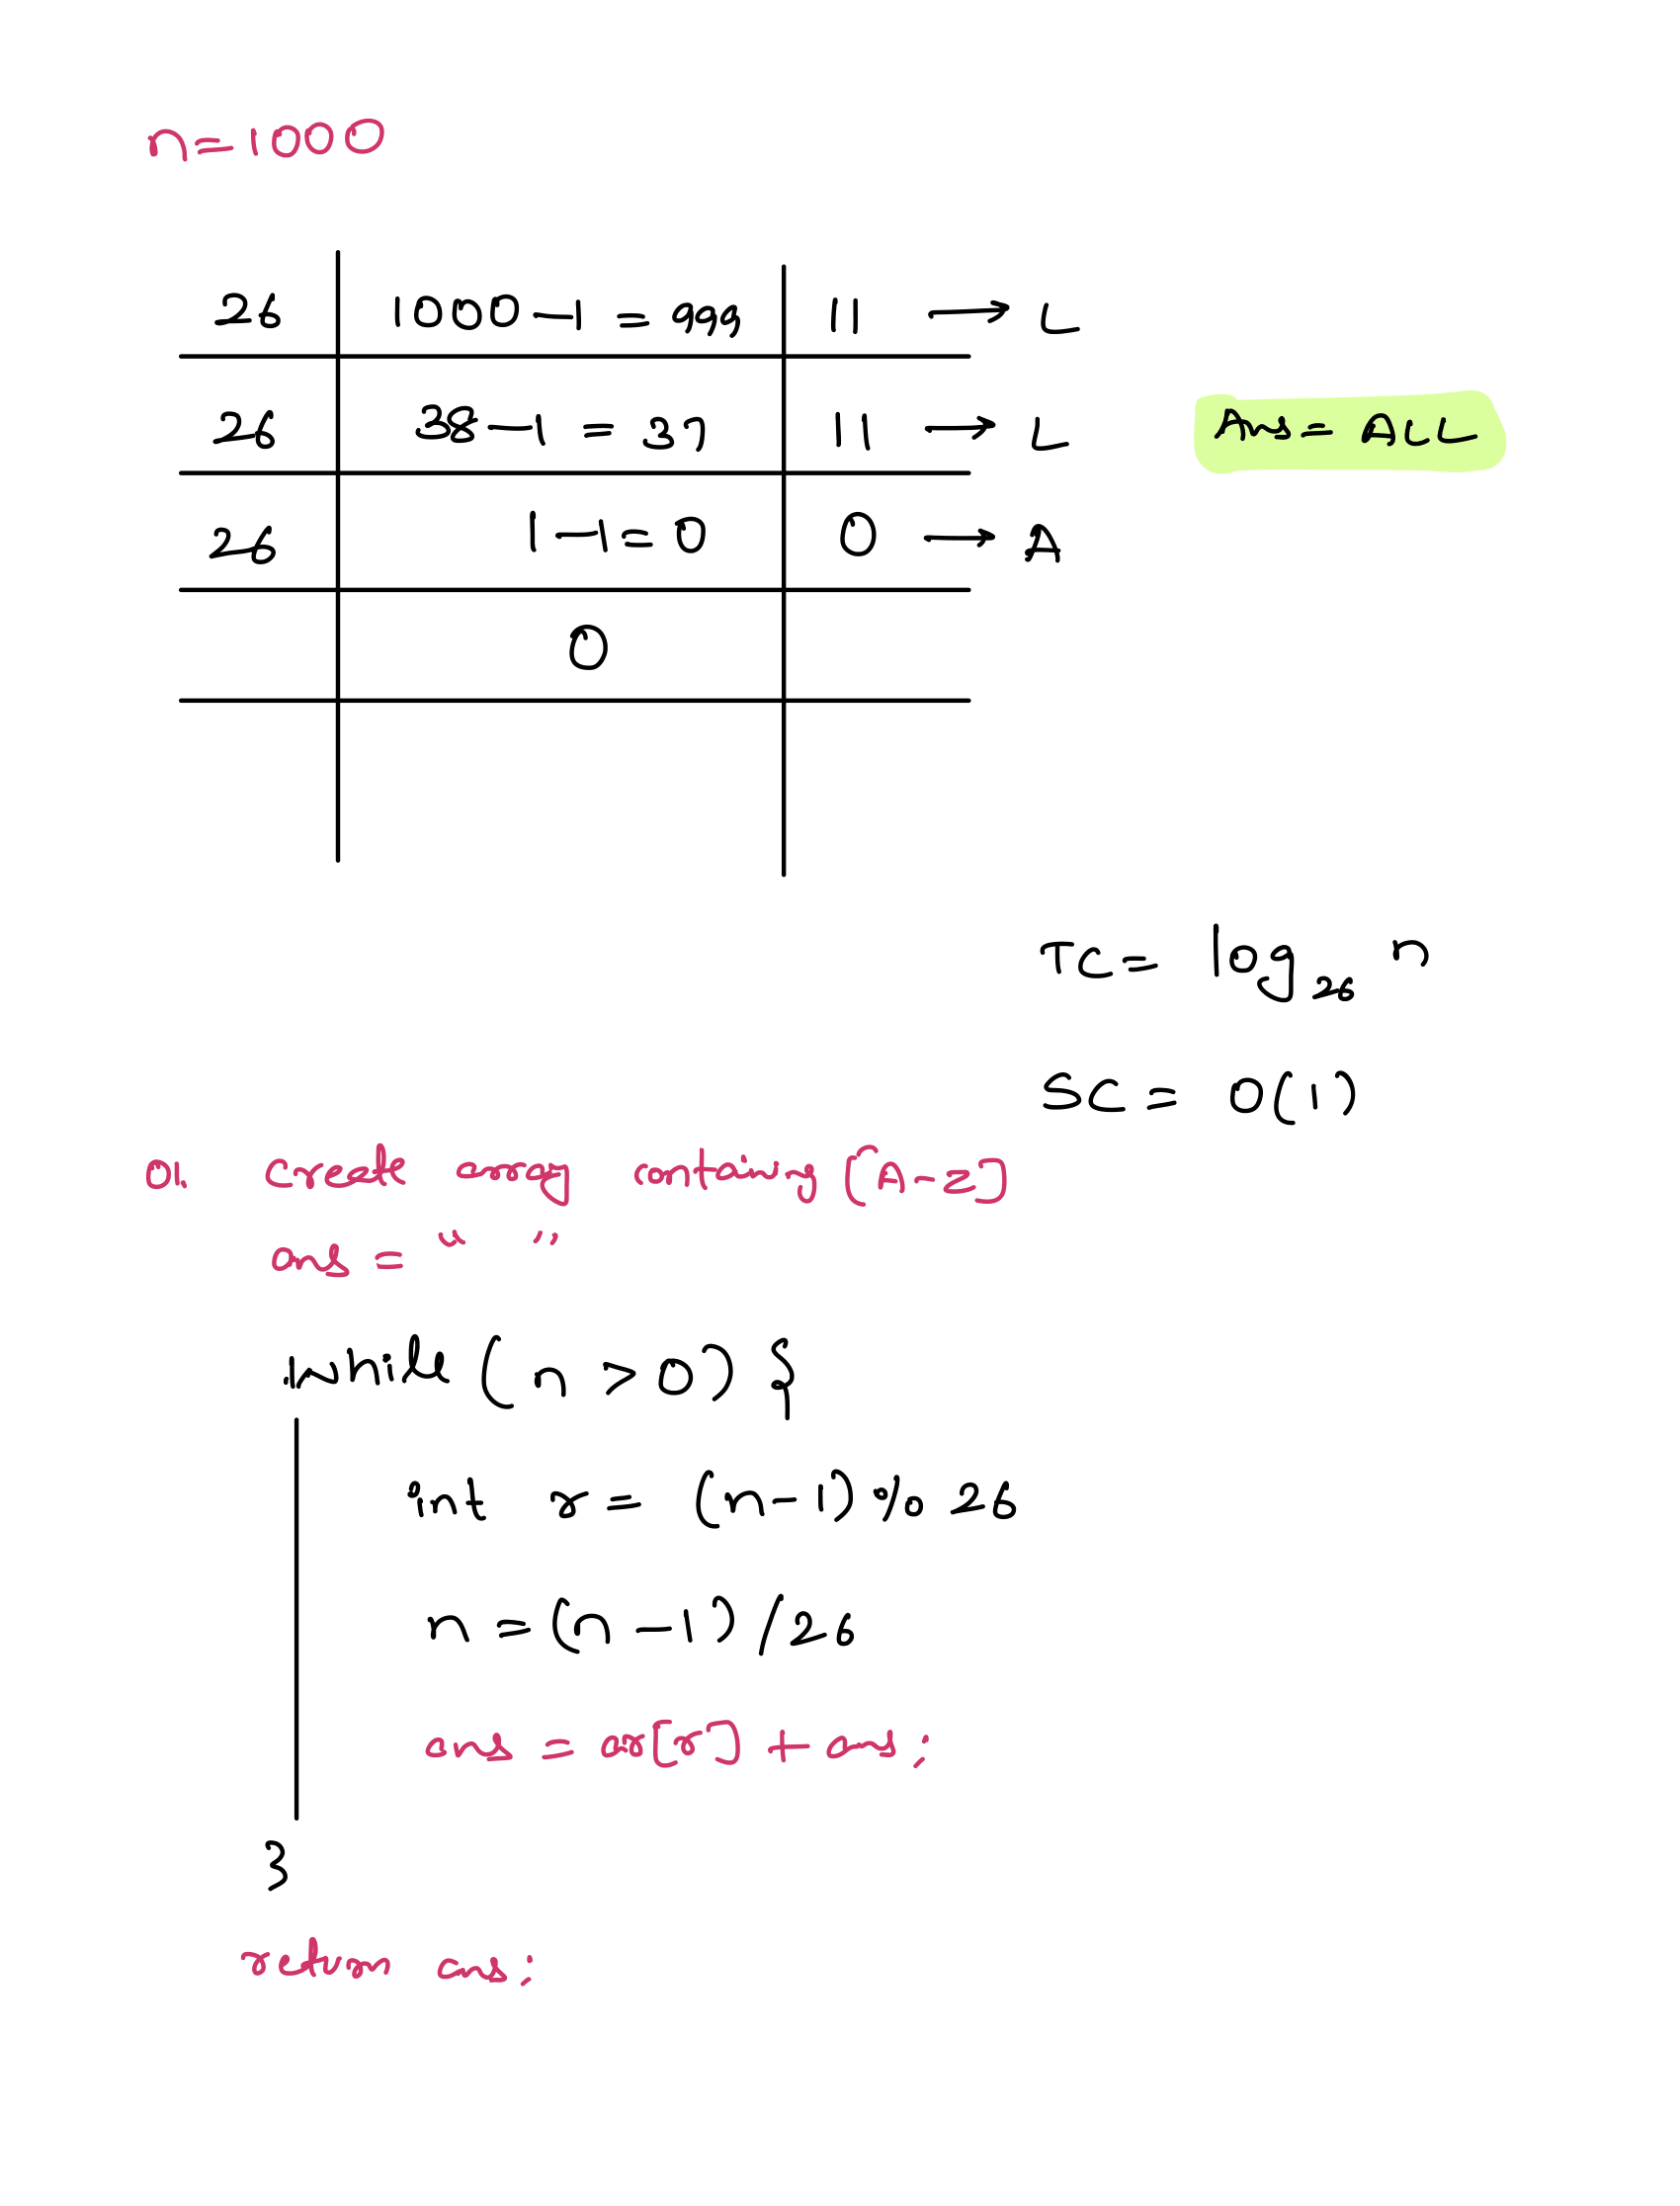 n=1000
26 1000-1 = 999 11 → L
26 38-1 = 37 11 → L
Ans = ALL
26 1-1=0 0 → A
0
TC = log₂₆ n
SC = O(1)
01. create array containing [A-Z]
ans = “ ”
while (n > 0) {
int r = (n-1) % 26
n = (n-1)/26
ans = ar[r] + ans;
}
return ans;